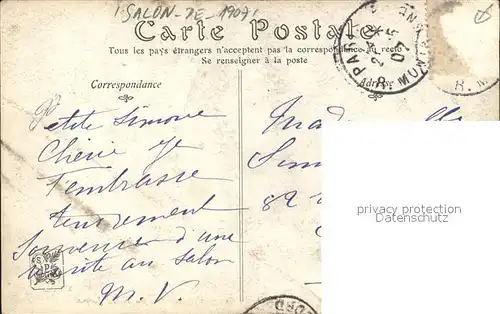 SALON-DE-1907
Carte Postale
Tous les pays étrangers n'acceptent pas la correspondance au recto
Se renseigner à la poste
Correspondance
Adresse
Petite Simone
Chérie je
t'embrasse
tendrement
Souvenir d'une
visite au Salon
M. V.
Sim
82
privacy protection
Datenschutz
PARIS
07
R. M